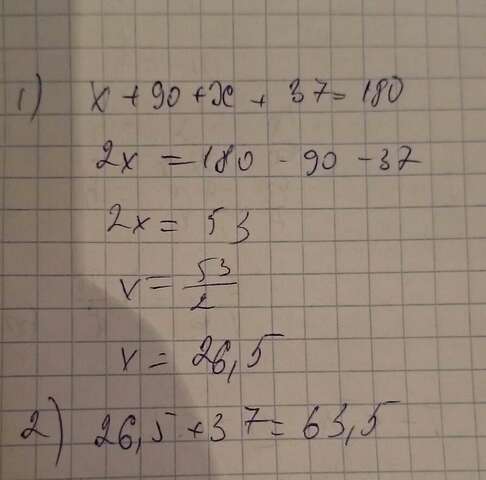 1) x + 90 + x + 37 = 180
2x = 180 - 90 - 37
2x = 53
x = 53/2
x = 26,5
2) 26,5 + 37 = 63,5